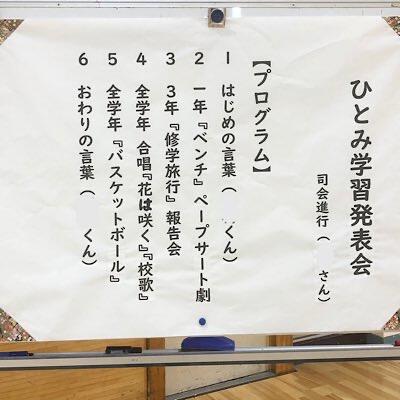 ひとみ学習発表会
司会進行（　　さん）
【プログラム】
1　はじめの言葉（　　くん）
2　一年『ベンチ』ペープサート劇
3　3年『修学旅行』報告会
4　全学年　合唱『花は咲く』『校歌』
5　全学年『バスケットボール』
6　おわりの言葉（　　くん）